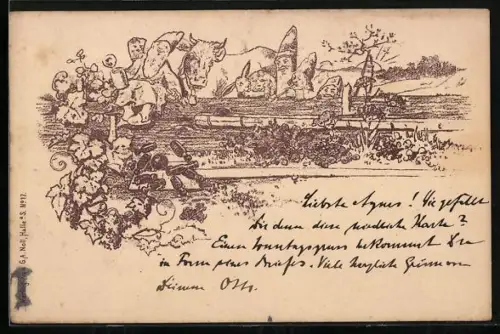 Liebste Agnes! Wie gefällt
Dir denn diese niedliche Karte?
Einen Sonntagsgruss bekommst Du
in Form eines Briefes. Viele herzliche Grüsse von
Deinem Otto.
G.A. Noll, Halle a S. No 12.